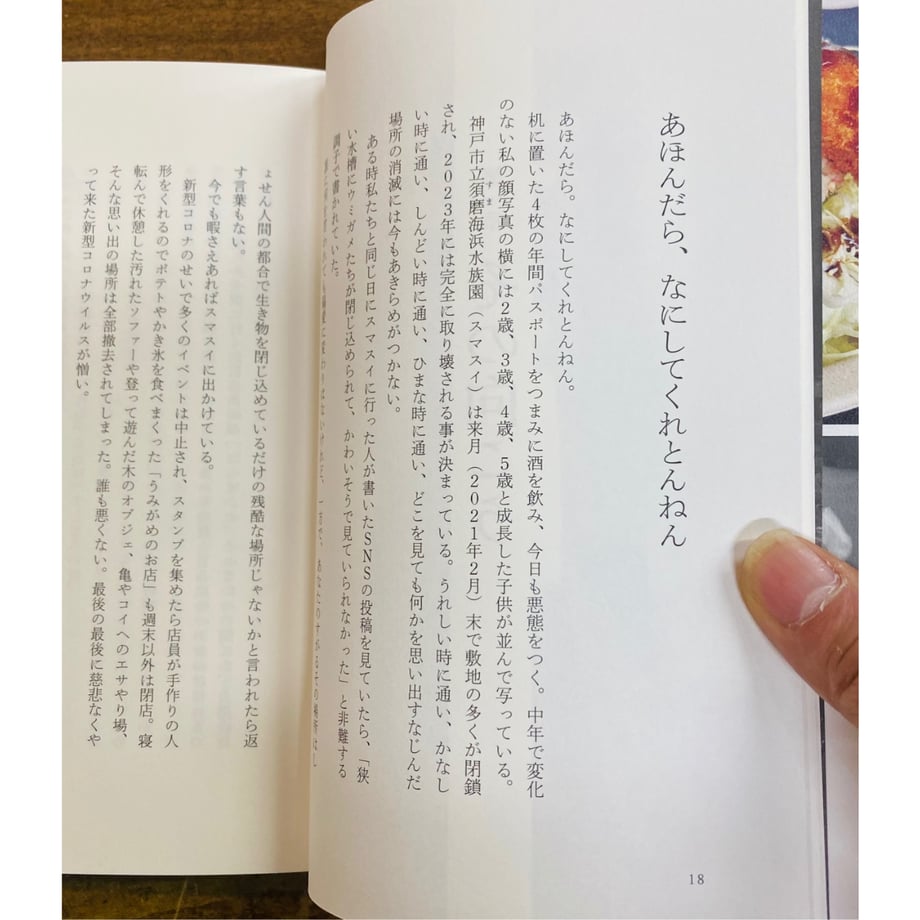 あほんだら、なにしてくれとんねん
あほんだら。なにしてくれとんねん。
机に置いた4枚の年間パスポートをつまみに酒を飲み、今日も悪態をつく。中年で変化
のない私の顔写真の横には2歳、3歳、4歳、5歳と成長した子供が並んで写っている。
神戸市立須磨海浜水族園（スマスイ）は来月（2021年2月）末で敷地の多くが閉鎖
され、2023年には完全に取り壊される事が決まっている。うれしい時に通い、かなし
い時に通い、しんどい時に通い、ひまな時に通い、どこを見ても何かを思い出すなじんだ
場所の消滅には今もあきらめがつかない。
ある時私たちと同じ日にスマスイに行った人が書いたSNSの投稿を見ていたら、「狭
い水槽にウミガメたちが閉じ込められて、かわいそうで見ていられなかった」と非難する
調子で書かれていた。
18
ょせん人間の都合で生き物を閉じ込めているだけの残酷な場所じゃないかと言われたら返
す言葉もない。
今でも暇さえあればスマスイに出かけている。
新型コロナのせいで多くのイベントは中止され、スタンプを集めたら店員が手作りの人
形をくれるのでポテトやかき氷を食べまくった「うみがめのお店」も週末以外は閉店。寝
転んで休憩した汚れたソファーや登って遊んだ木のオブジェ、亀やコイへのエサやり場、
そんな思い出の場所は全部撤去されてしまった。誰も悪くない。最後の最後に慈悲なくや
って来た新型コロナウイルスが憎い。